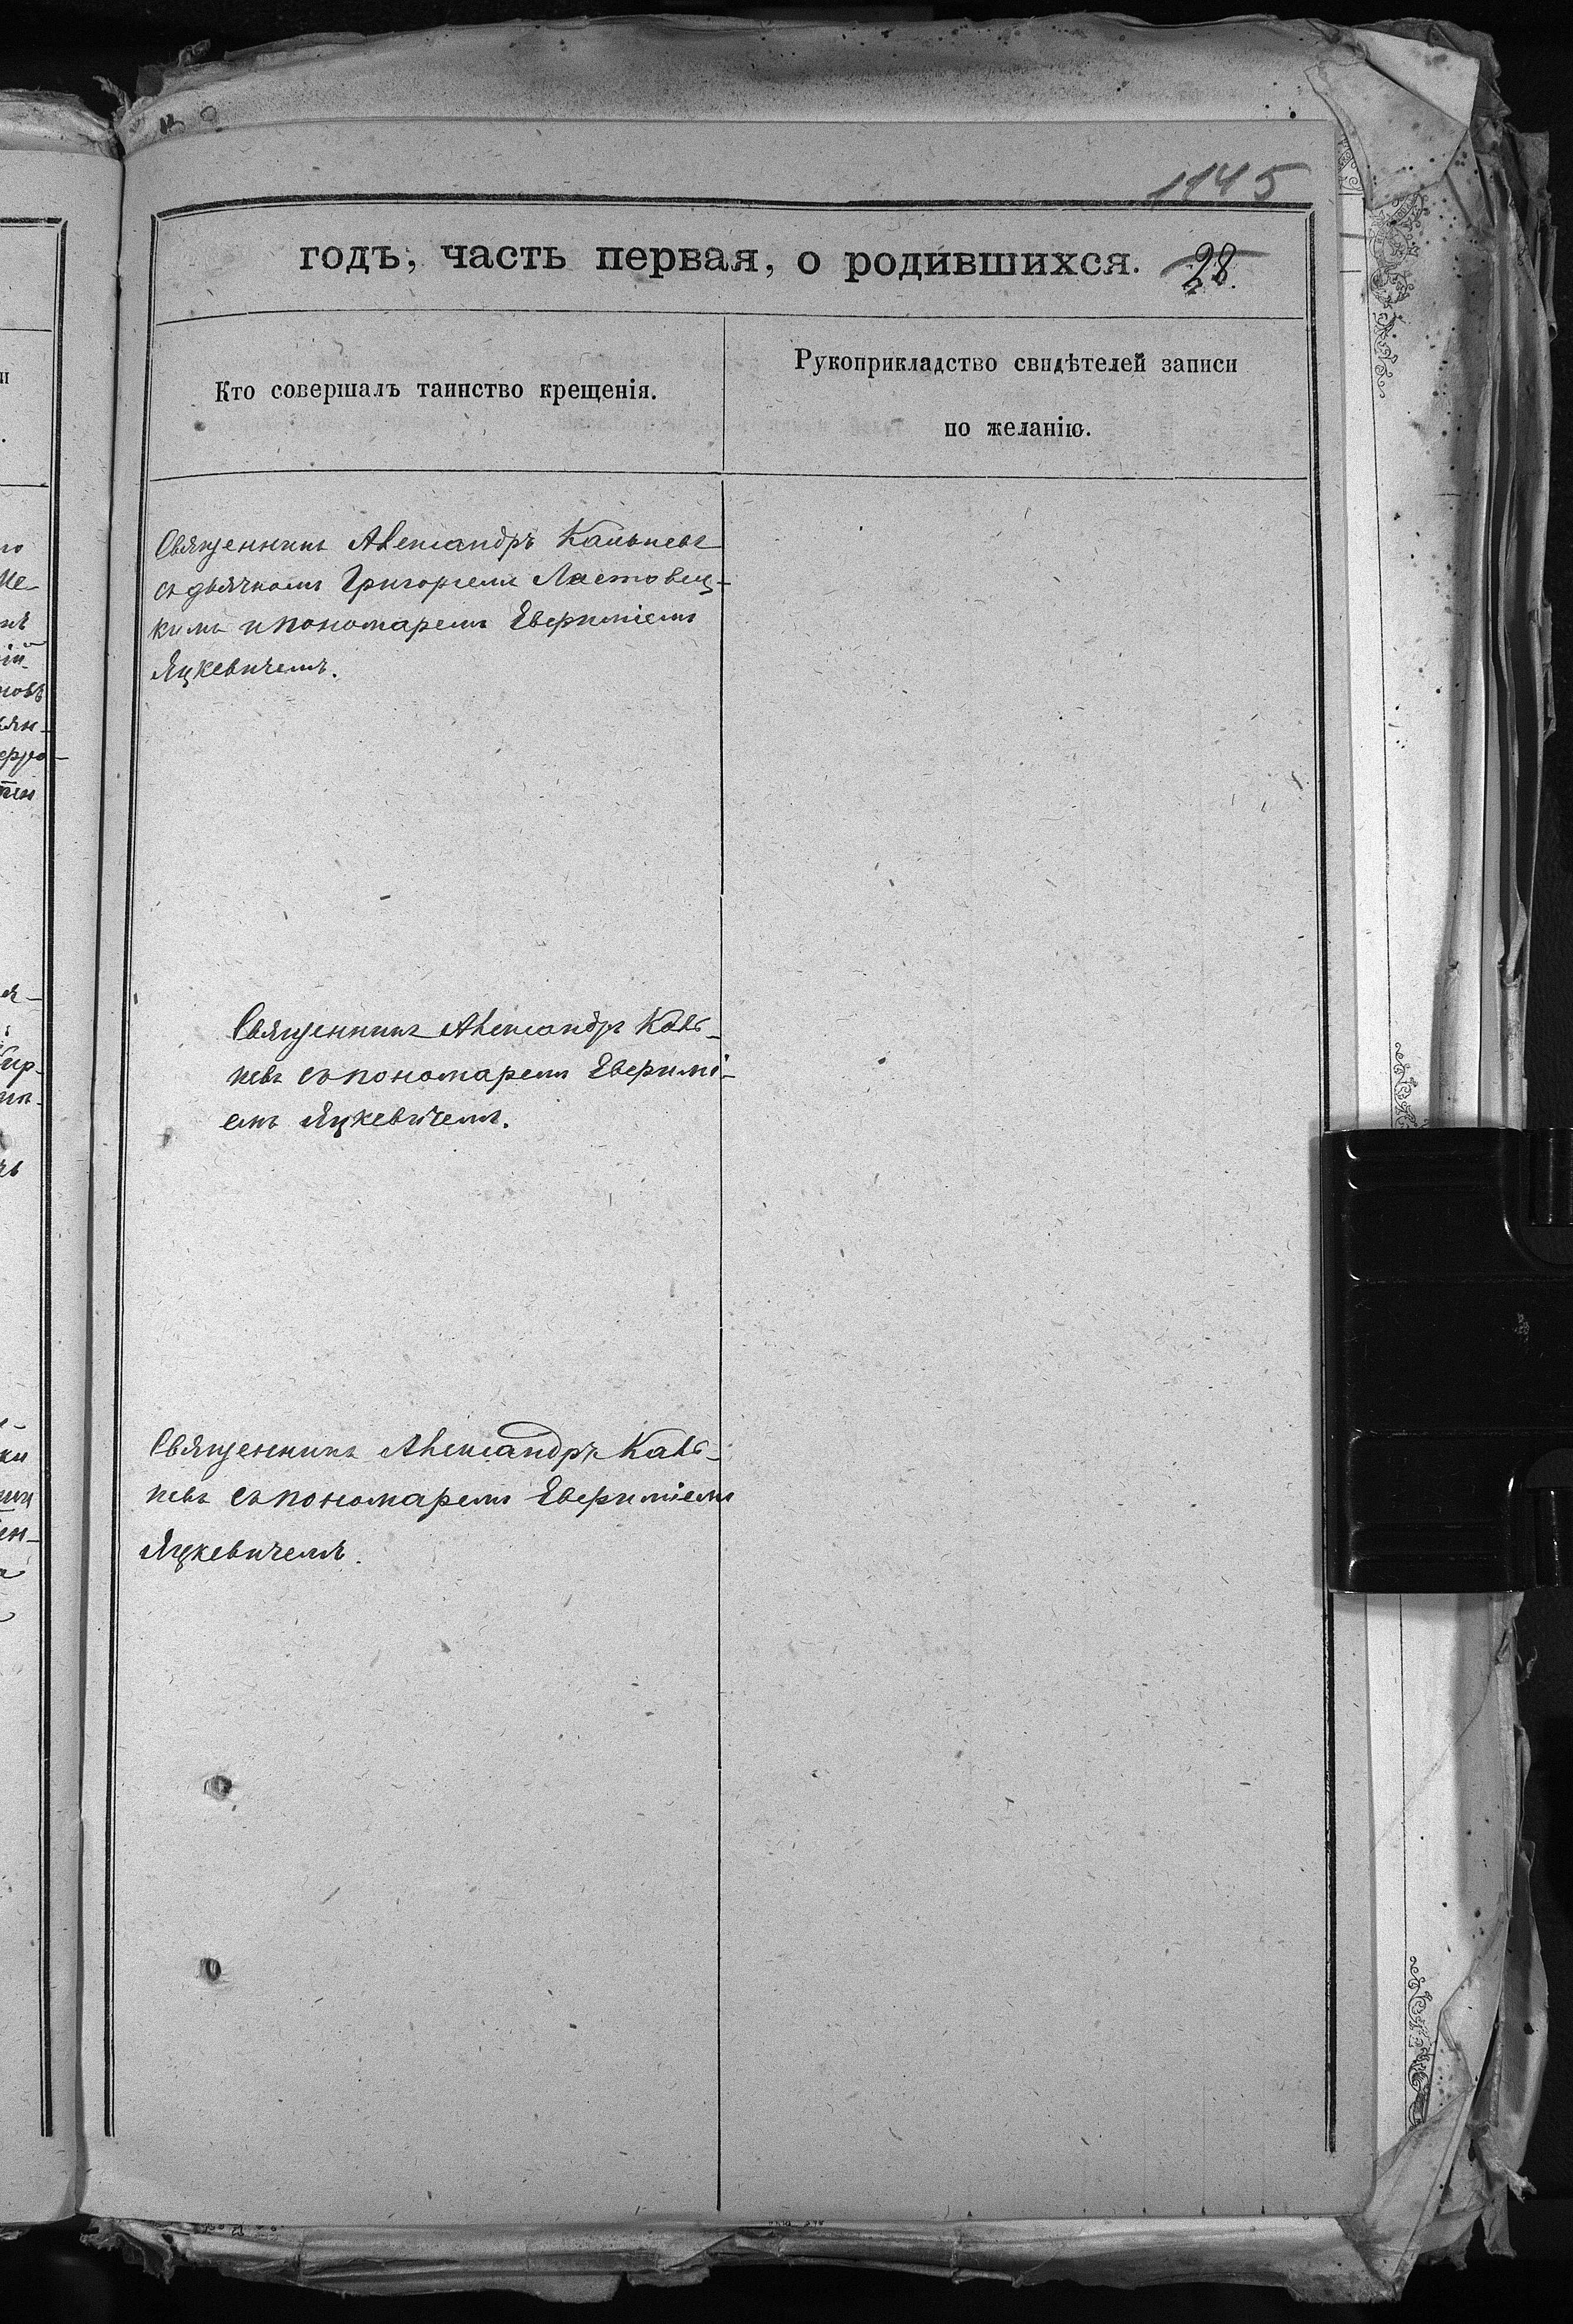 1145
годъ, часть первая, о родившихся. 28.
Кто совершалъ таинство крещенія.
Рукоприкладство свидѣтелей записи
по желанію.
Священникъ Александръ Кальневъ
съ дьячкомъ Григоріемъ Ластовец-
кимъ и пономаремъ Евфиміемъ
Яцкевичемъ.
Священникъ Александръ Каль-
невъ съ пономаремъ Евфимі-
емъ Яцкевичемъ.
Священникъ Александръ Каль-
невъ съ пономаремъ Евфиміемъ
Яцкевичемъ.